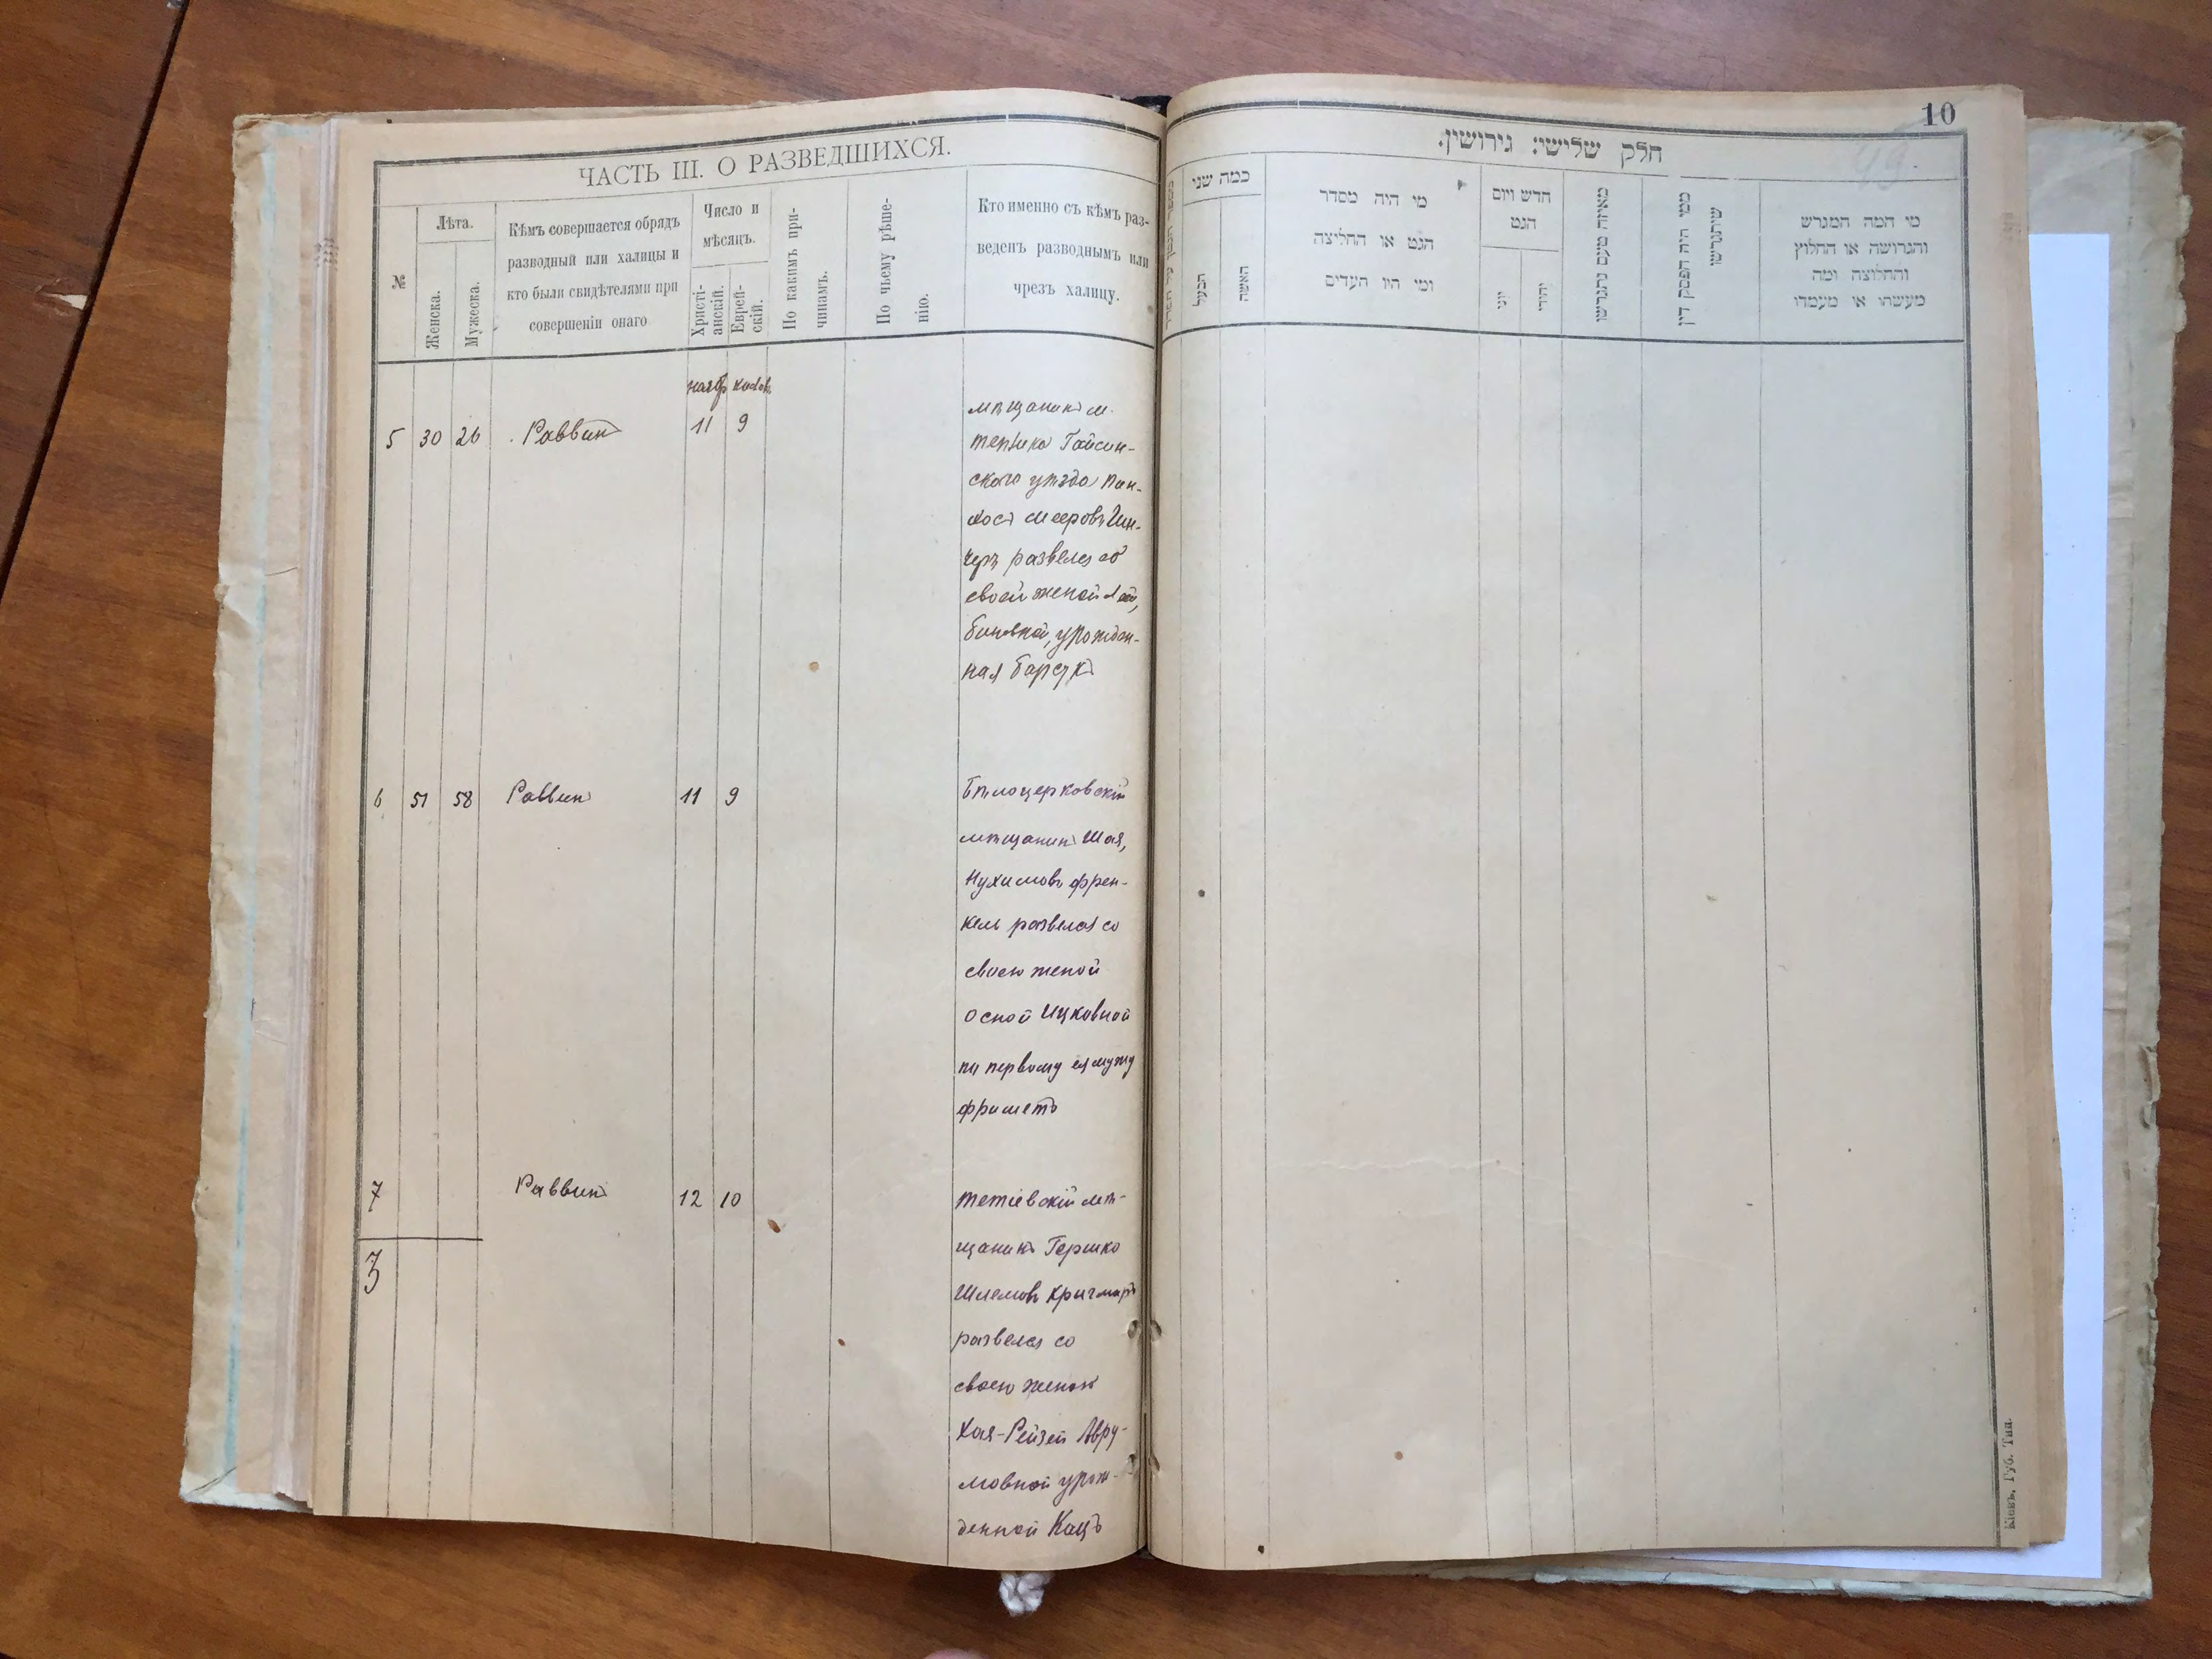 10
ЧАСТЬ III. О РАЗВЕДШИХСЯ.
№
Лѣта.
Женска.
Мужеска.
Кѣмъ совершается обрядъ
разводный или халицы и
кто были свидѣтелями при
совершеніи онаго
Число и
мѣсяцъ.
Христі-
анскій.
Еврей-
скій.
По какимъ при-
чинамъ.
По чьему рѣше-
нію.
Кто именно съ кѣмъ раз-
веденъ разводнымъ или
чрезъ халицу.
5 30 26 Раввинъ 11 9
мѣщанинъ м.
Гайсин-
скаго уѣзда Пин-
хосъ Мееровъ
развелся со
своей женой
урожден-
ная Барскъ
6 51 58 Раввинъ 11 9
Бѣлоцерковскій
мѣщанинъ Шая,
Нухимовъ Френ-
кель развелся со
своею женой
Осной Ицковной
по первому ея мужу
Фриметъ
7 Раввинъ 12 10
3
Тетіевскій мѣ-
щанинъ Гершко
Шлемовъ
развелся со
своею женой
Хая-Рейзей Авру-
мовной урож-
денной Кацъ
חלק שלישי: גירושין.
כמה שני
הבעל
האשה
מי היה מסדר
הגט או החליצה
ומי היו העדים
חדש ויום
הגט
יוני
יהודי
מאיזה טעם נתגרשו
ממי היה הפסק דין
שיתגרשו
מי המה המגרש
והגרושה או החלוץ
והחלוצה ומה
מעשהו או מעמדו
Кіевъ, Губ. Тип.